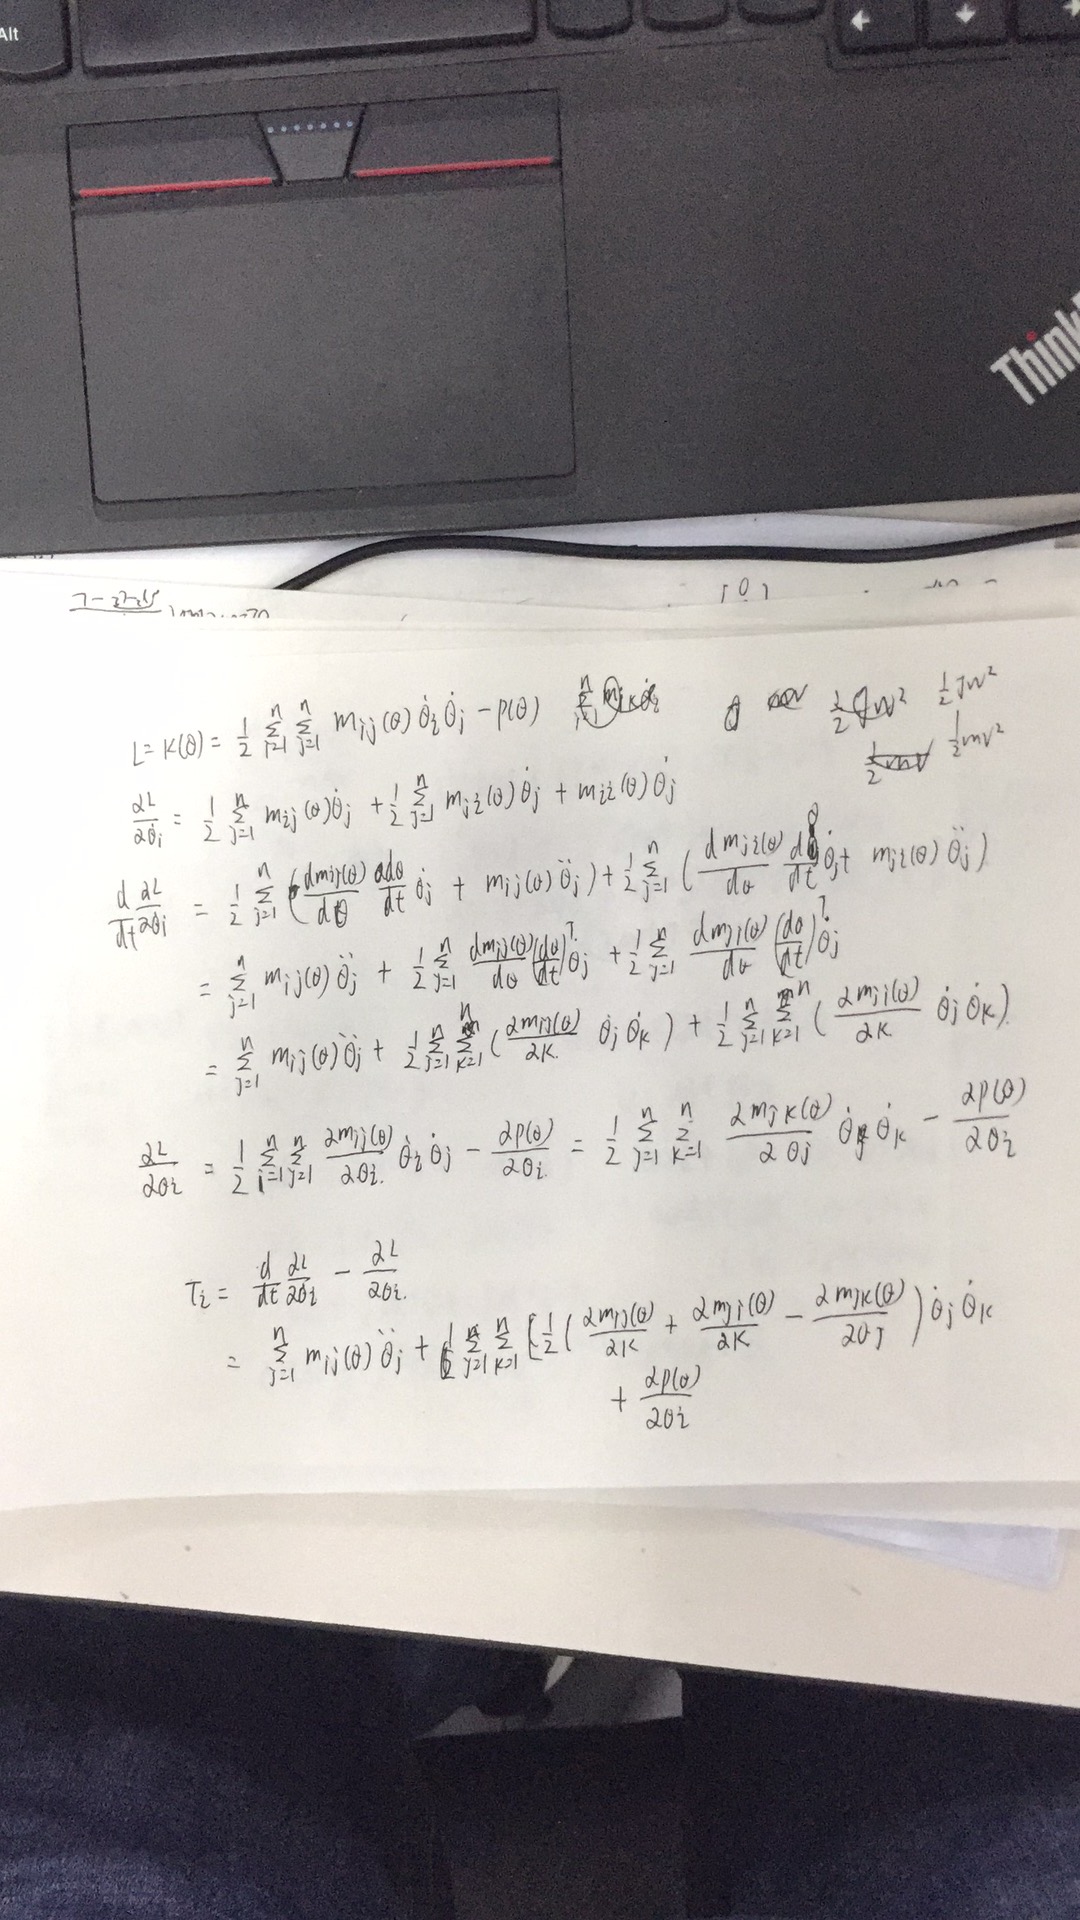 Alt
Think
L = K(θ) = 1/2 Σ_{i=1}^{n} Σ_{j=1}^{n} m_{ij}(θ) θ̇_i θ̇_j − P(θ)
1/2 Jw² 1/2 Jw²
1/2 mv²
∂L/∂θ̇_i = 1/2 Σ_{j=1}^{n} m_{ij}(θ) θ̇_j + 1/2 Σ_{j=1}^{n} m_{ji}(θ) θ̇_j + m_{ii}(θ) θ̇_j
d/dt ∂L/∂θ̇_i = 1/2 Σ_{j=1}^{n} (dm_{ij}(θ)/dθ dθ/dt θ̇_j + m_{ij}(θ) θ̈_j) + 1/2 Σ_{j=1}^{n} (dm_{ji}(θ)/dθ dθ/dt θ̇_j + m_{ji}(θ) θ̈_j)
= Σ_{j=1}^{n} m_{ij}(θ) θ̈_j + 1/2 Σ_{j=1}^{n} dm_{ij}(θ)/dθ (dθ/dt)^T θ̇_j + 1/2 Σ_{j=1}^{n} dm_{ij}(θ)/dθ (dθ/dt)^T θ̇_j
= Σ_{j=1}^{n} m_{ij}(θ) θ̈_j + 1/2 Σ_{j=1}^{n} Σ_{k=1}^{n} (∂m_{ij}(θ)/∂k θ̇_j θ̇_k) + 1/2 Σ_{j=1}^{n} Σ_{k=1}^{n} (∂m_{ij}(θ)/∂k θ̇_j θ̇_k)
∂L/∂θ_i = 1/2 Σ_{i=1}^{n} Σ_{j=1}^{n} ∂m_{ij}(θ)/∂θ_i θ̇_i θ̇_j − ∂P(θ)/∂θ_i = 1/2 Σ_{j=1}^{n} Σ_{k=1}^{n} ∂m_{jk}(θ)/∂θ_j θ̇_j θ̇_k − ∂P(θ)/∂θ_i
τ_i = d/dt ∂L/∂θ̇_i − ∂L/∂θ_i
= Σ_{j=1}^{n} m_{ij}(θ) θ̈_j + Σ_{j=1}^{n} Σ_{k=1}^{n} [1/2 (∂m_{ij}(θ)/∂k + ∂m_{ij}(θ)/∂k − ∂m_{jk}(θ)/∂θ_j) θ̇_j θ̇_k
+ ∂P(θ)/∂θ_i